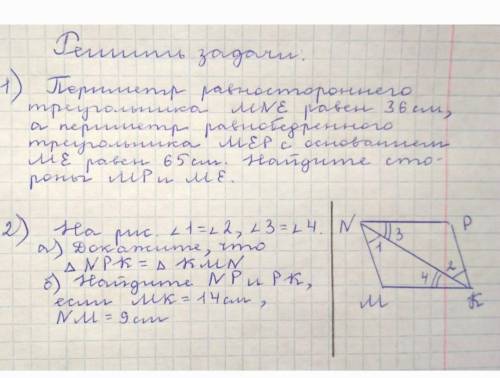 Решить задачи.
1) Периметр равностороннего
треугольника MNE равен 36 см,
а периметр равнобедренного
треугольника MEP с основанием
ME равен 65 см. Найдите сто-
роны MP и ME.
2) На рис. ∠1=∠2, ∠3=∠4.
а) Докажите, что
△ NPK = △ KMN
б) Найдите NP и PK,
если MK = 14 см,
NM = 9 см
N P
3
1
2
4
M K